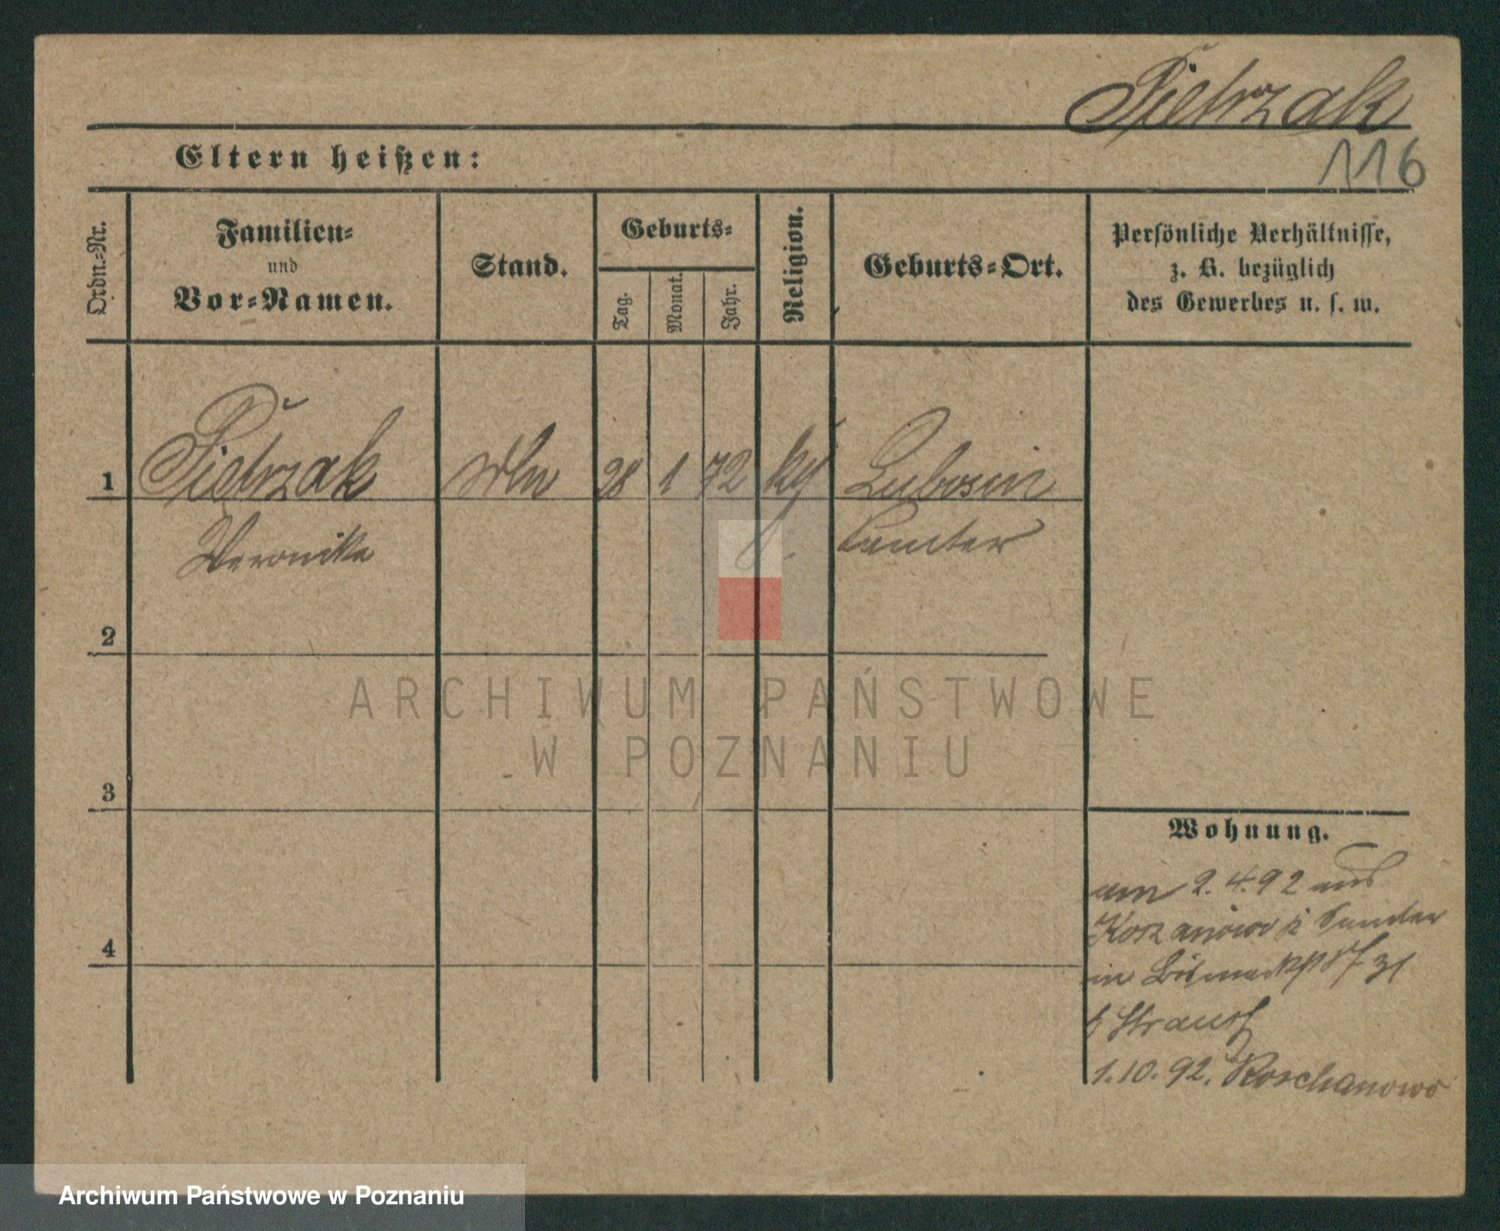 Pietrzak
116
Eltern heißen:
Ordn.-Nr.
Familien-
und
Vor-Namen.
Stand.
Geburts-
Tag.
Monat.
Jahr.
Religion.
Geburts-Ort.
Persönliche Verhältnisse,
z. B. bezüglich
des Gewerbes u. s. w.
1 Pietrzak 28 1 72 Lubosin
Veronika Samter
2
3
4
Wohnung.
am 2.4.92 aus
Samter
in
b Strauch
1.10.92. Roschanowo
ARCHIWUM PAŃSTWOWE
W POZNANIU
Archiwum Państwowe w Poznaniu